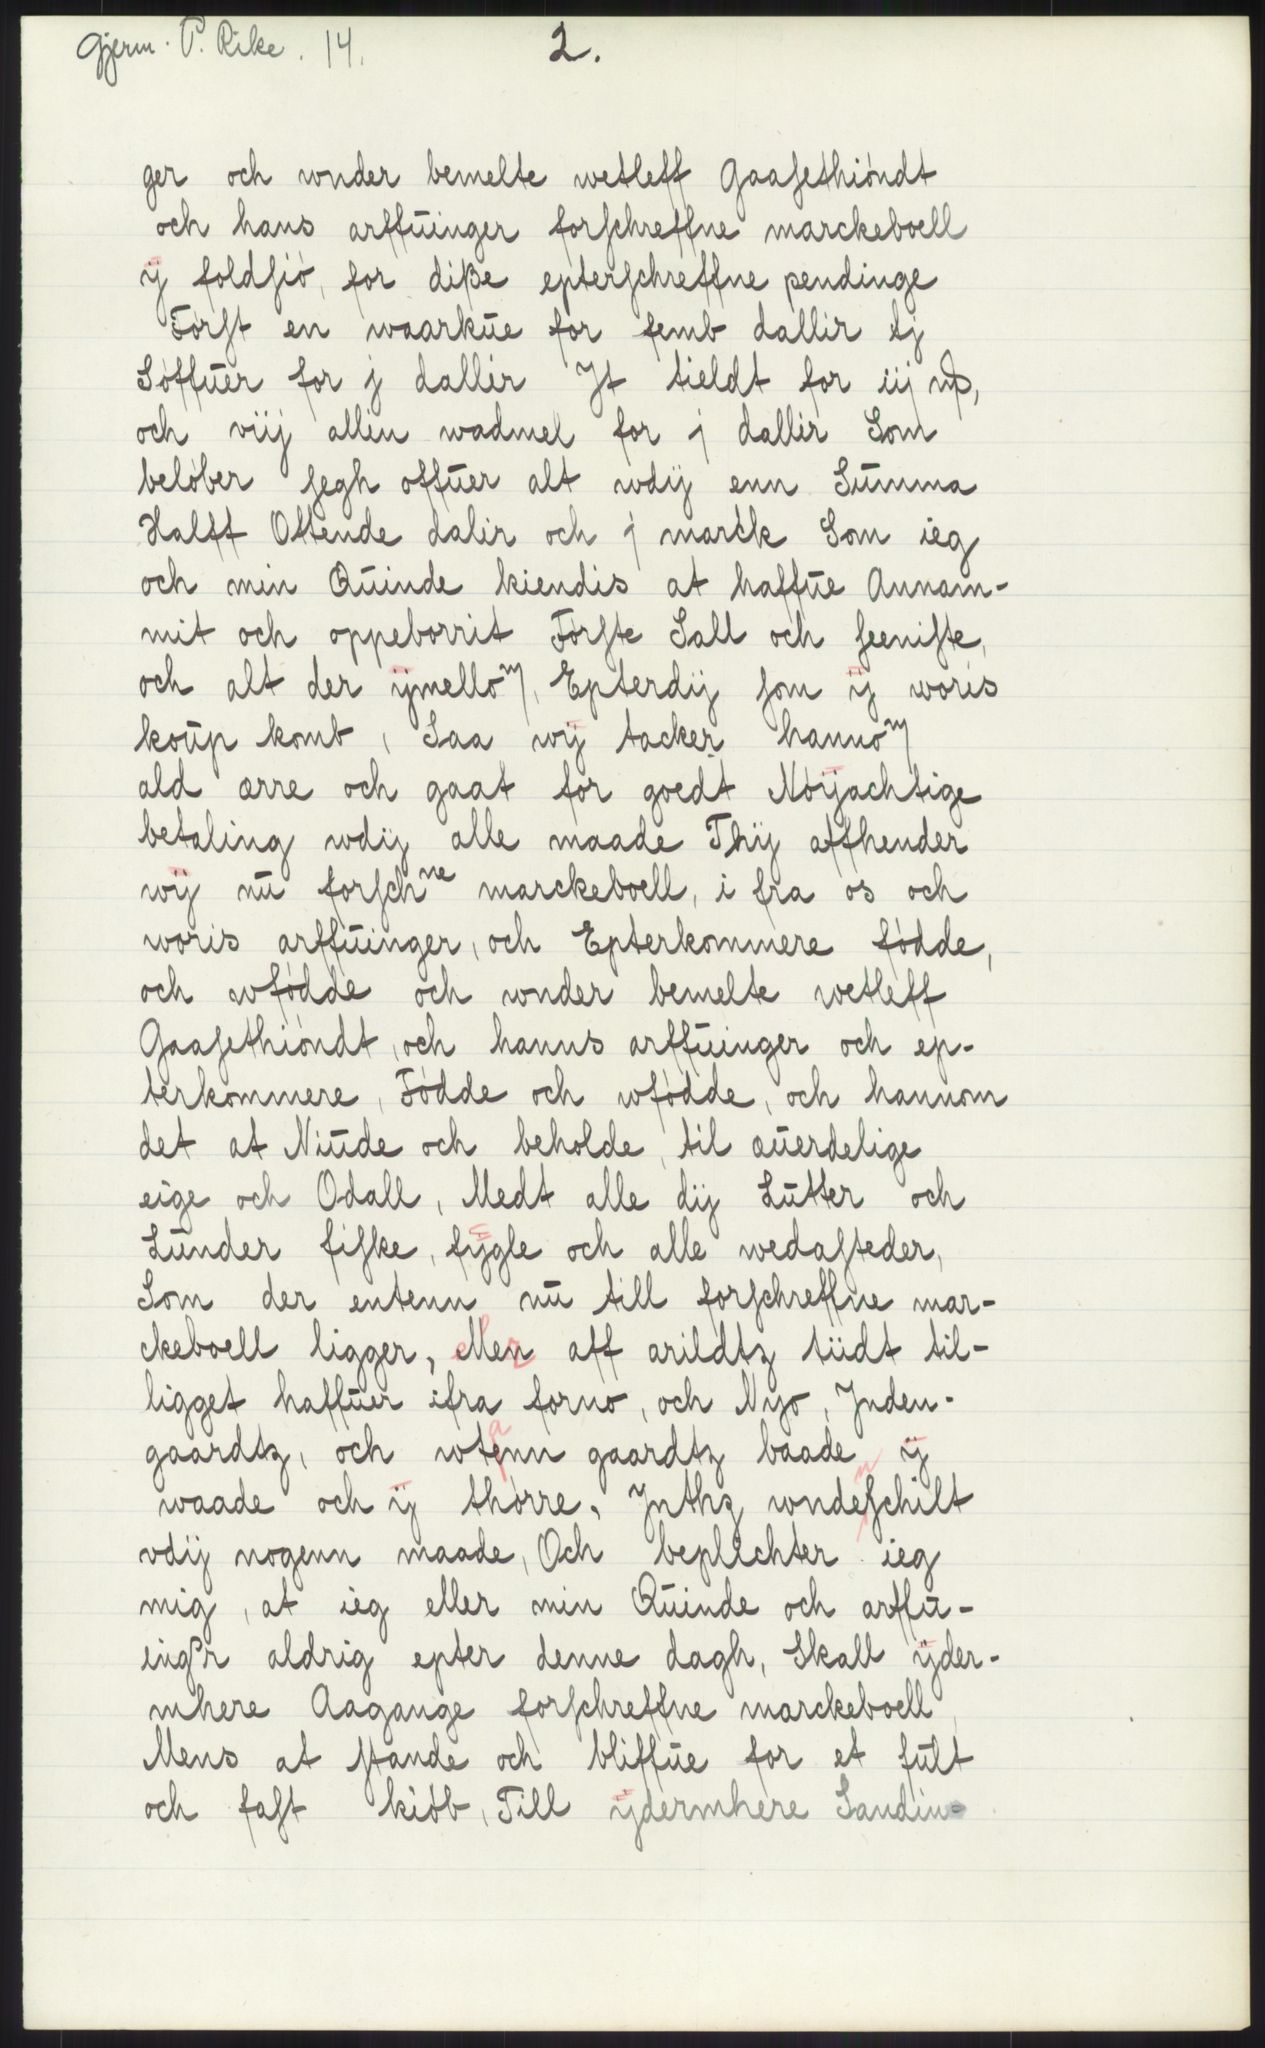 Gjerm. P. Rike. 14.
2.
ger och wnder bemelte wetleff Gaasethiöndt
och hans arffūinger forschreffne marckeboell
ÿ foldsiö, for diße epterschreffne pendinge
Först en waarkūe for femb dallir tj
Söffūer for j dallir Jt tieldt for iij
och viij allin wadmel for j dallir Som
belöber segh offūer alt wdij enn Sūmma
Halff Ottende dalir och j marck Som ieg
och min Qūinde kiendis at haffūe Annam-
mit och oppeborrit Förste Sall och seeniste,
och alt der ÿmellom, Epterdij som ÿ woris
koūp komb, Saa wÿ tacker hannom
ald ærre och gaat for goedt Nöÿachtige
betaling wdij alle maade Thij affhender
wÿ nū forschne marckeboell, i fra os och
woris arffūinger, och Epterkommere födde,
och wfödde och wnder bemelte wetleff
Gaasethiöndt, och hanns arffūinger och ep-
terkommere, Födde och wfödde, och hannom
det at Niūde och beholde, til æūerdelige
eige och Odall, Medt alle dij Lūtter och
Lūnder fiske, fÿgle och alle wedasteder,
Som der entenn nū till forschreffne mar-
ckeboell ligger, eller aff arildtz tiidt til-
ligget haffūer ifra forno, och Nyo, Jnden-
gaardtz, och wtann gaardtz baade ÿ
waade och ÿ thörre, Jnthz wndenschilt
vdij nogenn maade, Och beplichter ieg
mig, at ieg eller min Qūinde och arffū-
inger aldrig epter denne dagh, Skall ÿder-
mhere Aagange forschreffne marckeboell,
Mens at stande och bliffūe for et fūlt
och fast kiöb, Till ÿdermhere Sandin-